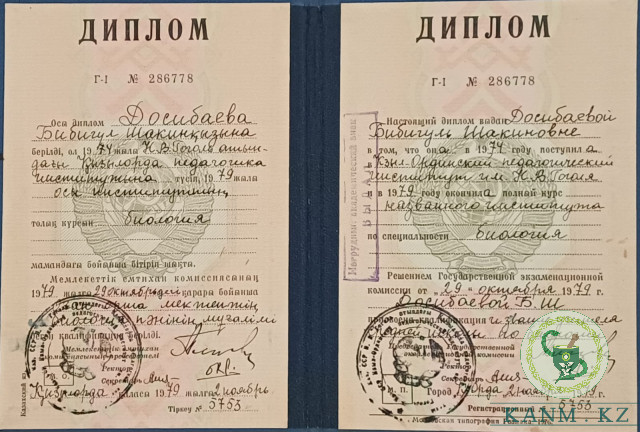 ДИПЛОМ
Г-I № 286778
Осы диплом Досибаева
Бибигул Шакинқызына
берілді, ол 1974 жылы Н.В.Гоголь атын-
дағы Қызылорда педагогика
институтина түсіп, 1979 жылы
осы институттың
толық курсын
биология
мамандығы бойынша бітіріп шықты.
Мемлекеттік емтихан комиссиясының
1979 жылғы 29 октябрдегі қарары бойынша
орта мектептің
биология пәнінің мұғалімі
квалификациясы берілді
Мемлекеттік емтихан
Ректор
Секретарь
М. О.
Қызылорда қаласы 1979 жылғы 2 ноябрь
Тіркеу № 5753
ДИПЛОМ
Г-I № 286778
Настоящий диплом выдан Досибаевой
Бибигуль Шакиновне
в том, что она в 1974 году поступила
в Кзыл-Ординский педагогический
институт им. Н.В. Гоголя
и в 1979 году окончила полный курс
названного института
по специальности биология
Решением Государственной экзаменационной
комиссии от 29 октября 1979 г.
Досибаевой Б.Ш.
присвоена квалификация и звание учителя
Председатель Государственной
экзаменационной комиссии
Ректор
Секретарь
М. П.
Город 2 ноября 1979 г.
Регистрационный № 5753
Московская типография Гознака.
Нагрудный академический знак
KANM.KZ